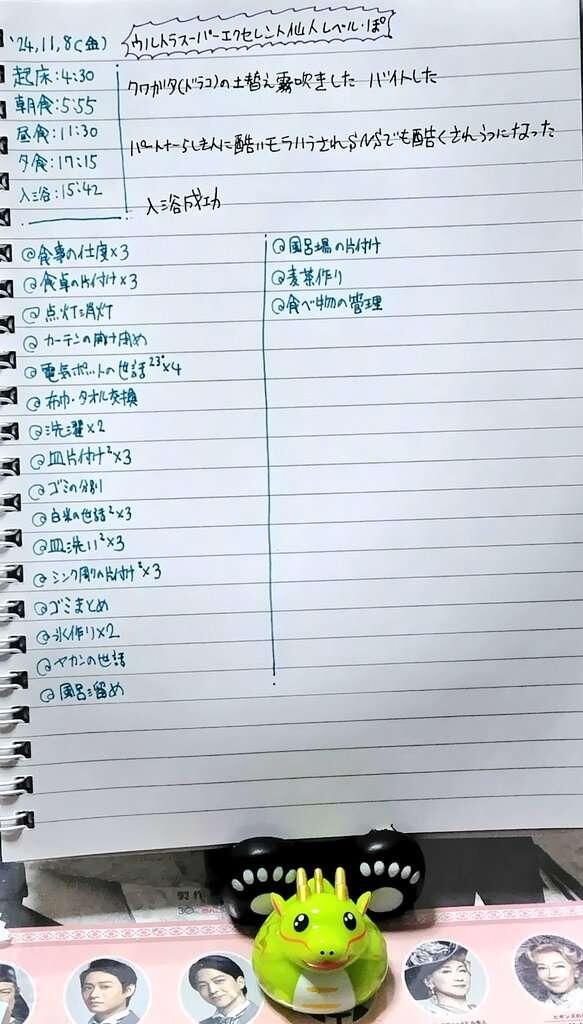 '24,11,8(金)
ウルトラスーパーエクセレント仙人レベル・ぽ
起床:4:30
朝食:5:55
昼食:11:30
夕食:17:15
入浴:15:42
クワガタ(ドラコ)の土替え霧吹きした バイトした
パートナーらしき人に酷いモラハラされSNSでも酷くされうつになった
入浴成功
@食事の仕度×3
@食卓の片付け×3
@点灯消灯
@カーテンの開け閉め
@電気ポットの世話23°×4
@布巾・タオル交換
@洗濯×2
@皿片付け²×3
@ゴミの分別
@白米の世話²×3
@皿洗い²×3
@シンク周りの片付け²×3
@ゴミまとめ
@氷作り×2
@ヤカンの世話
@風呂溜め
@風呂場の片付け
@麦茶作り
@食べ物の管理
製作